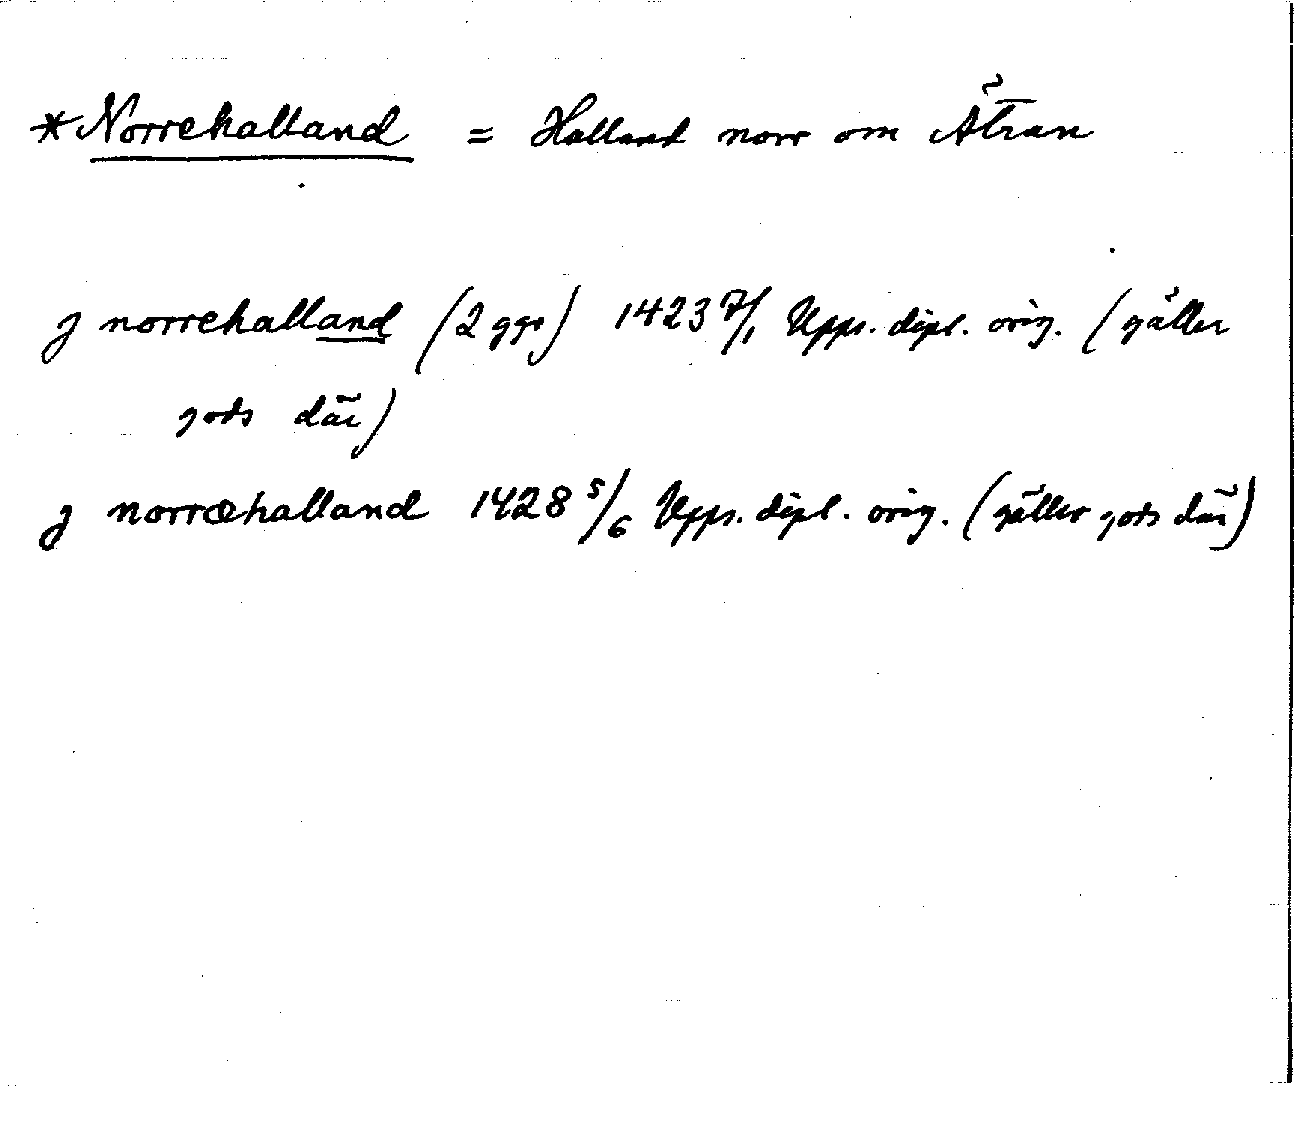 *Norrehalland = Halland norr om Ätran
J norrehalland (2 ggr) 1423 7/1 Upps. dipl. orig. (gäller
gods där)
J norræhalland 1428 5/6 Upps. dipl. orig. (gäller gods där)